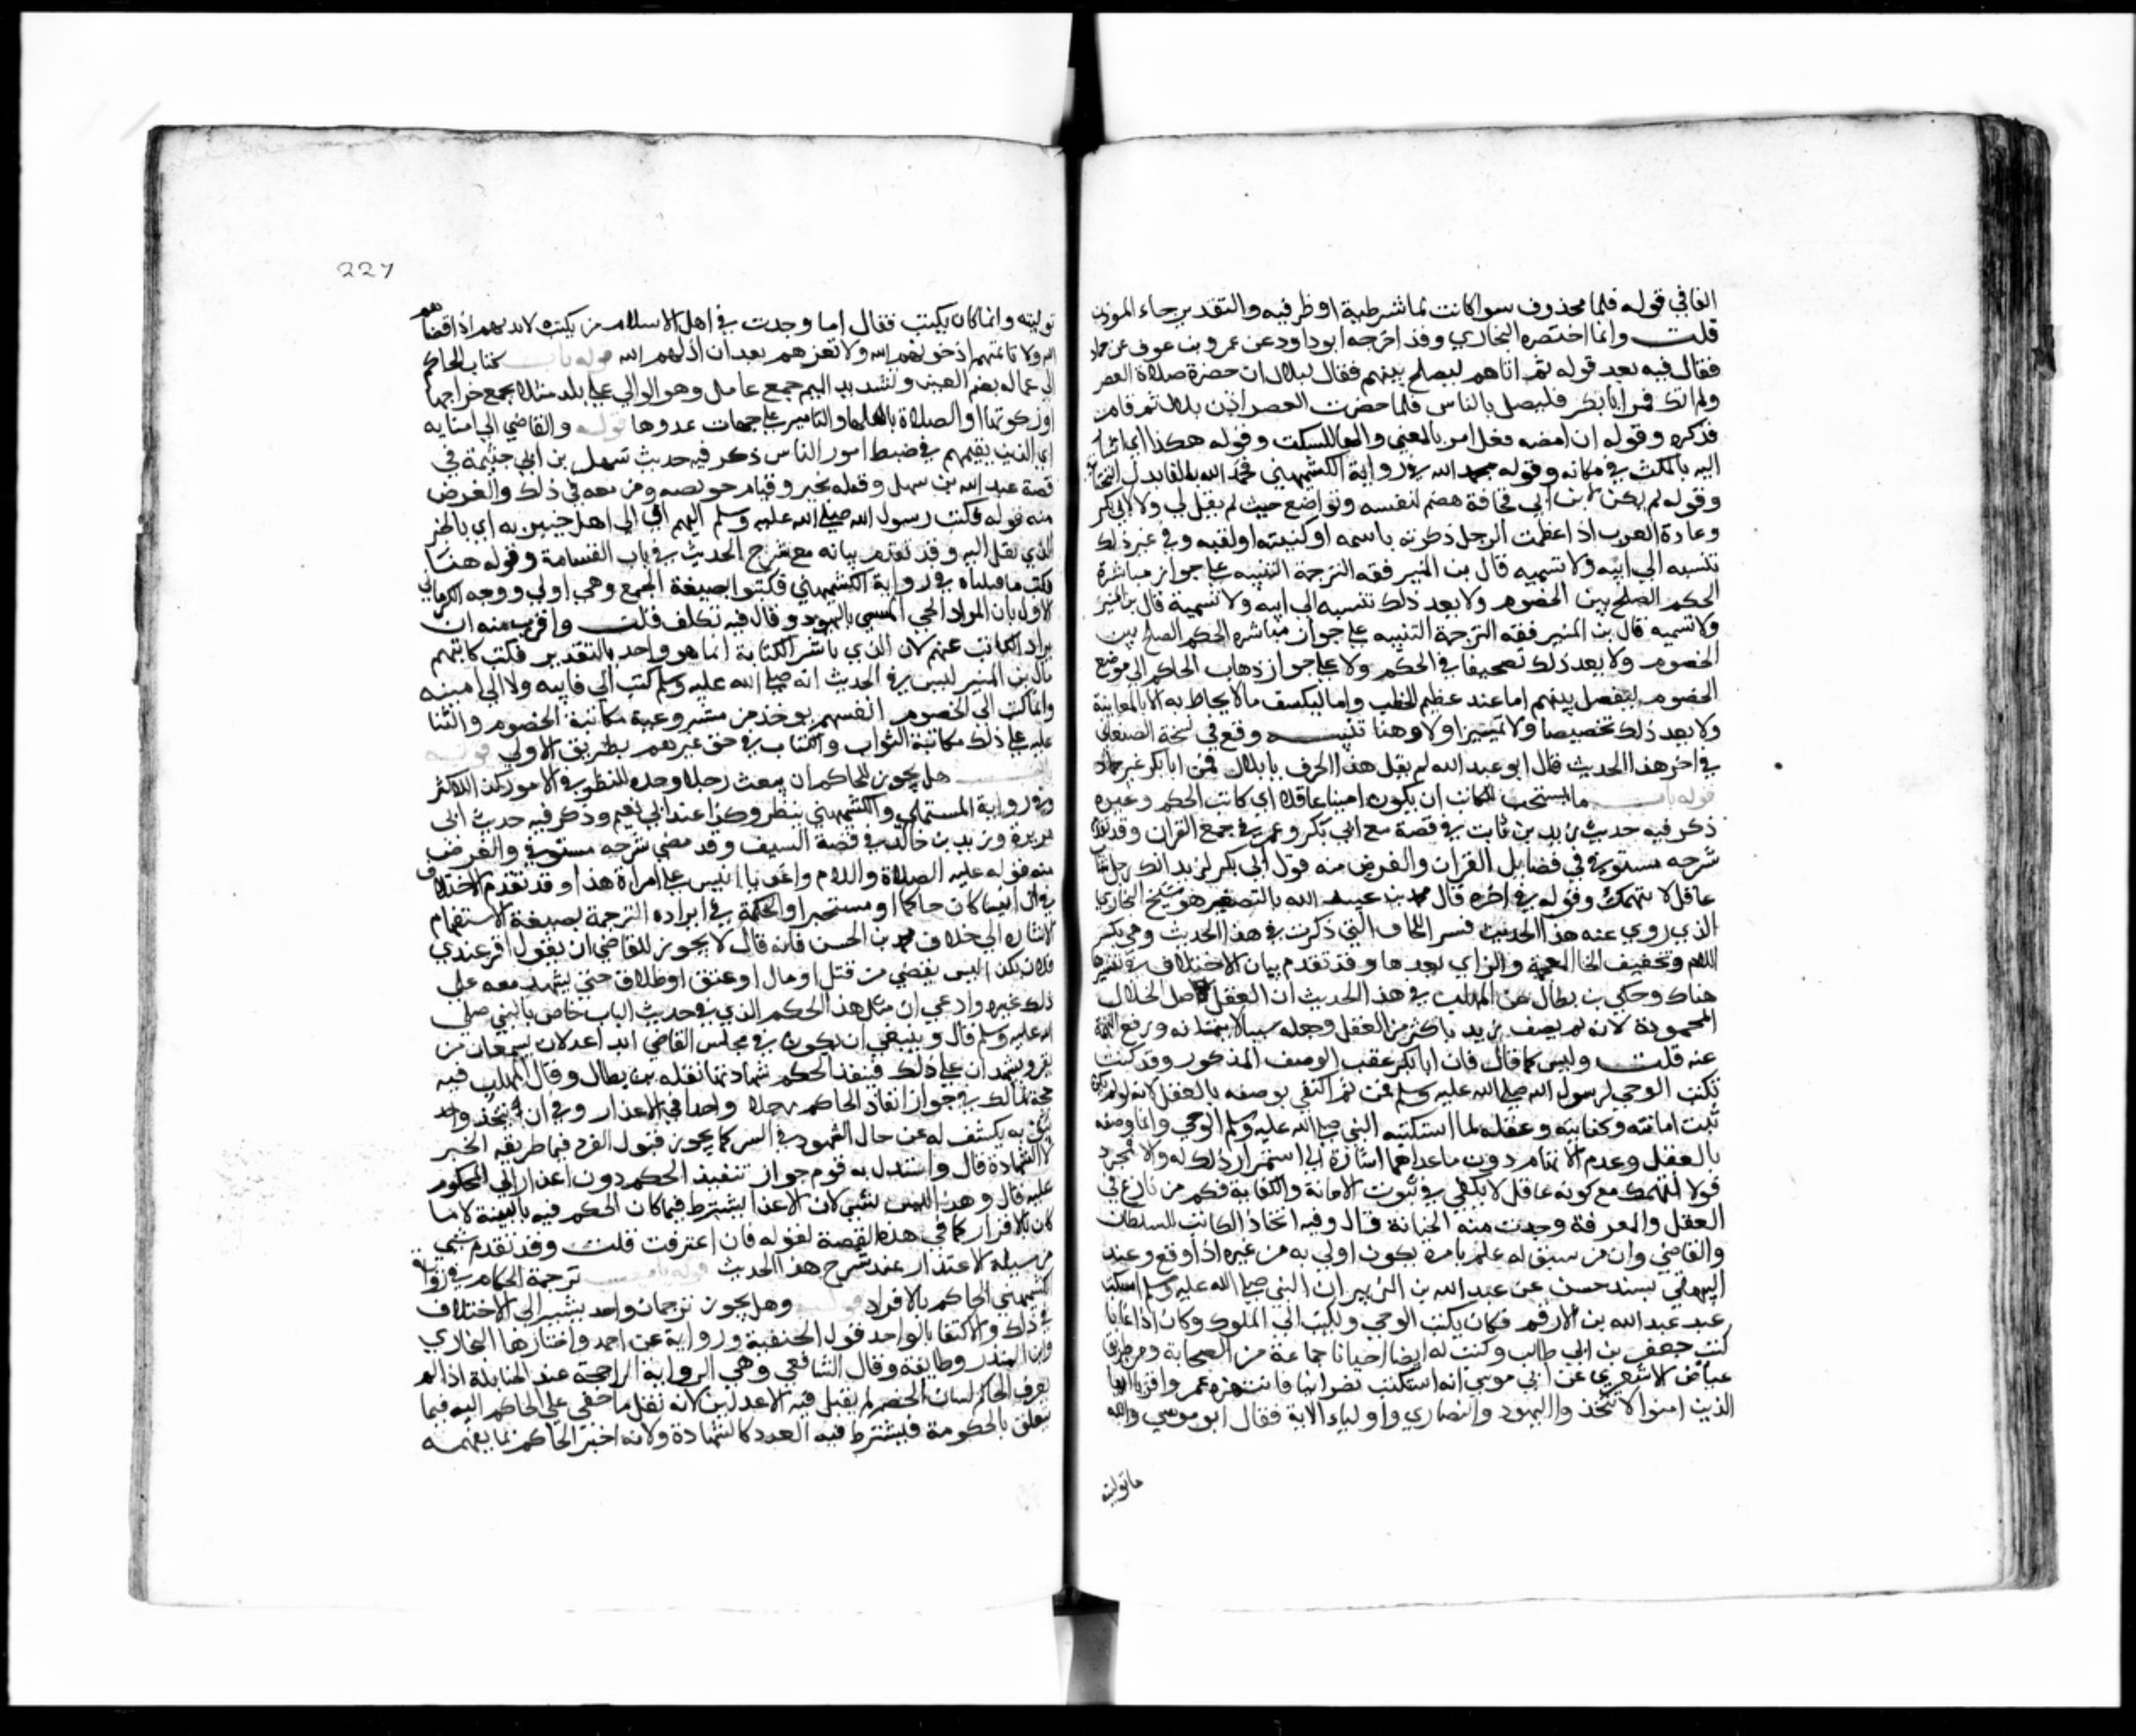 الفا في قوله فلما محذوف سوا كانت لما شرطية او ظرفيه والتقدير جاء الموذن
قلت وانما اختصره البخاري وقد اخرجه ابو داود عن عمرو بن عوف عن حماد
فقال فيه بعد قوله ثم اتاهم ليصلح بينهم فقال لبلال ان حضرة صلاة العصر
ولم اتك فمر ابا بكر فليصل بالناس فلما حضرت العصر اذن بلال ثم قام
فذكره وقوله ان امضه فعل امر بالمعني والها للسكت وقوله هكذا اي اشار
اليه بالمكث في مكانه وقوله محمد الله في رواية الكشميهني فحمد الله
وقوله لم يكن لابن ابي قحافة هضم لنفسه وتواضع حيث لم يقل لي ولا لابي بكر
وعادة العرب اذ اعظمت الرجل ذكرته باسمه او كنيته او لقبه وفي غير ذلك
تنسبه الي ابيه ولا تسميه قال بن المنير فقه الترجمة التنبيه علي جواز مباشرة
الحكم الصلح بين الخصوم ولا يعد ذلك تنسيه الي ابيه ولا تسمية قال بن المنير
ولا تسميه قال بن المنير فقه الترجمة التنبيه علي جواز مباشره الحكم الصلح بين
الخصوم ولا يعد ذلك تصحيفا في الحكم ولا علي جواز ذهاب الحاكم الي موضع
الخصوم ليفصل بينهم اما عند عظم الخطب واما ليكسف ما لا يحاط به الا بالمعاينة
ولا يعد ذلك تخصيصا ولا تمييزا ولا وهنا تنبيه وقع في نسخة الصغاني
في اخر هذا الحديث قال ابو عبد الله لم يقل هذا الحرف يا بلال فمر ابا بكر غير حماد
قوله باب ما يستحب للكاتب ان يكون امينا عاقلا اي كاتب الحكم وغيره
ذكر فيه حديث زيد بن ثابت في قصة مع ابي بكر وعمر في جمع القران وقد تقدم
شرحه مستوفي في فضايل القران والغرض منه قول ابي بكر لزيد انك رجل شاب
عاقل لا نتهمك وقوله في اخره قال محمد بن عبيد الله بالتصغير هو شيخ البخاري
الذي روي عنه هذا الحديث فسر اللخاف التي ذكرت في هذا الحديث وهي بكسر
اللام وتخفيف الخا المعجمة والزاي بعدها وقد تقدم بيان الاختلاف في تفسيرها
هناك وحكي بن بطال عن المهلب في هذا الحديث ان العقل اصل الخلال
المحمودة لانه لم يصف زيد باكثر من العقل وجعله سببا لايتمانه ورفع التهمة
عنه قلت وليس كما قال فان ابا بكر عقب الوصف المذكور وقد كنت
تكتب الوحي لرسول الله صلي الله عليه وسلم فمن ثم اكتفي بوصفه بالعقل لانه لو لم
تثبت امانته وكفايته وعقله لما استكتبه النبي صلي الله عليه وسلم الوحي وانما وصفه
بالعقل وعدم الاتهام دون ما عداهما اشارة الي استمرار ذلك له والا فمجرد
قولا لا نتهمك مع كونه عاقل لا يكفي في ثبوت الامانة والكفاية فكم من بارع في
العقل والمعرفة وجدت منه الخيانة قال وفيه اتخاذ الكاتب للسلطان
والقاضي وان من سبق له علم بامر يكون اولي به من غيره اذا وقع وعند
البيهقي بسند حسن عن عبد الله بن الزبير ان النبي صلي الله عليه وسلم استكتب
عبد عبد الله بن الارقم فكان يكتب الوحي ويكتب الي الملوك وكان اذا غابا
كتب جعفر بن ابي طالب وكتب له ايضا احيانا جماعة من الصحابة ومن طريق
عياض الاشعري عن ابي موسي انه استكتب نصرانيا فانتهزه عمر وقرا يا ايها
الذين امنوا لا تتخذوا اليهود والنصاري اولياء الاية فقال ابو موسي والله
ما توليته
227
توليته وانما كان يكتب فقال اما وجدت في اهل الاسلام من يكتب لا تدنهم اذ اقصاهم
الله ولا تاتمنهم اذ خونهم الله ولا تعزهم بعد ان اذلهم الله قوله باب كتاب الحاكم
الي عماله بضم العين وتشديد الميم جمع عامل وهو الوالي علي بلد مثلا لجمع خراجها
او زكوتها او الصلاة باهلها او التامير علي جهات عدوها قوله والقاضي الي امنايه
اي الذين يقيمهم في ضبط امور الناس ذكر فيه حديث سهل بن ابي حثمة في
قصة عبد الله بن سهل وقتله بخيبر وقيام حويصه ومن معه في ذلك والغرض
منه قوله فكتب رسول الله صلي الله عليه وسلم اليهم اي الي اهل خيبر به اي بالخبر
الذي نقل اليه وقد تقدم بيانه مع شرح الحديث في باب القسامة وقوله هنا
فكتب ما قتلناه في رواية الكشميهني فكتبوا بصيغة الجمع وهي اولي ووجه الكرماني
الاول بان المراد الحي المسمي باليهود وقال فيه تكلف قلت واقرب منه ان
يراد الكاتب عنهم لان الذي باشر الكتابة انما هو واحد بالتقدير فكتب كاتبهم
قال بن المنير ليس في الحديث انه صلي الله عليه وسلم كتب الي نايبه ولا الي امينه
وانما كتب الي الخصوم انفسهم يوخذ من مشروعية مكاتبة الخصوم والثنا
عليه علي ذلك مكاتبة النواب والكتاب في حق غيرهم بطريق الاولي قوله
باب هل يجوز للحاكم ان يبعث رجلا وحده للنظر في الامور كذا للاكثر
وفي رواية المستملي والكشميهني ينظر وكذا عند ابي نعيم وذكر فيه حديث ابي
هريرة وزيد بن خالد في قصة العسيف وقد مضي شرحه مستوفي والغرض
منه قوله عليه الصلاة والسلام واغد يا انيس علي امراة هذا وقد تقدم الاختلاف
في ان انيسا كان حاكما او مستخبرا والحكمة في ايراده الترجمة بصيغة الاستفهام
الاشارة الي خلاف محمد بن الحسن فانه قال لا يجوز للقاضي ان يقول اقر عندي
فلان بكذا ليس يقضي من قتل او مال او عتق او طلاق حتي يشهد معه علي
ذلك غيره وادعي ان مثل هذا الحكم الذي في حديث الباب خاص بالنبي صلي
الله عليه وسلم قال وينبغي ان يكون في مجلس القاضي ابدا عدلان يسمعان من
يقر ويشهدان علي ذلك فينفذ الحكم بشهادتهما نقله بن بطال وقال المهلب فيه
حجة لمالك في جواز انفاذ الحاكم رجلا واحدا في الاعذار وفي ان يتخذ واحد
يثق به يكشف له عن حال الشهود في السر كما يجوز قبول الفرد فيما طريقه الخبر
لا الشهادة قال واستدل به قوم جواز تنفيذ الحكم دون اعذار الي المحكوم
عليه قال وهذا ليس بشي لان الاعذار يشترط فيما كان الحكم فيه بالبينة لا ما
كان بالاقرار كما في هذه القصة لقوله فان اعترفت قلت وقد تقدم شي
من مسيلة الاعتذار عند شرح هذا الحديث قوله باب ترجمة الحكام في رواية
الكشميهني الحاكم بالافراد قوله وهل يجوز ترجمان واحد يشير الي الاختلاف
في ذلك والاكتفا بالواحد قول الحنفية ورواية عن احمد واختارها البخاري
وابن المنذر وطايفة وقال الشافعي وهي الرواية الراجحة عند الحنابلة اذا لم
يعرف الحاكم لسان الخصم لم يقبل فيه الا عدلين لانه نقل ما خفي علي الحاكم اليه فيما
يتعلق بالحكومة فيشترط فيه العدد كالشهادة ولانه اخبر الحاكم بما يفهمه